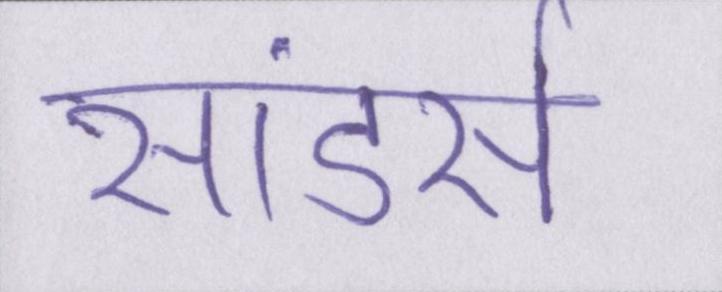 सांडर्स